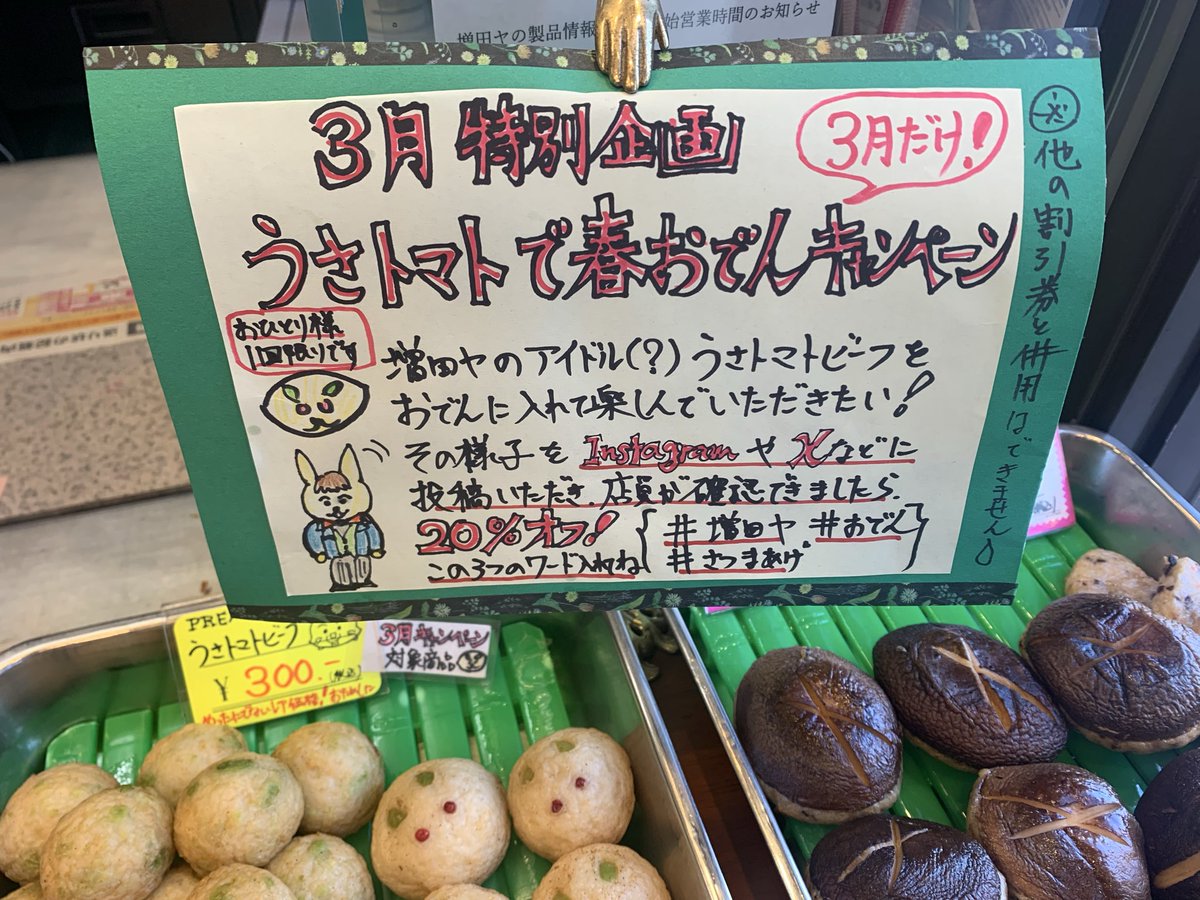 増田ヤの製品情報
始営業時間のお知らせ
3月特別企画
3月だけ!
うさトマトで春おでんキャンペーン
おひとり様
1回限りです
増田ヤのアイドル(?)うさトマトビーフを
おでんに入れて楽しんでいただきたい!
その様子をInstagramやXなどに
投稿いただき、店員が確認できましたら、
20%オフ!
この3つのワード入れてね
#増田ヤ #おでん
#さつまあげ
※他の割引券と併用はできません
PRE
うさトマトビーフ
¥300.-(税込)
3月キャンペーン
対象商品